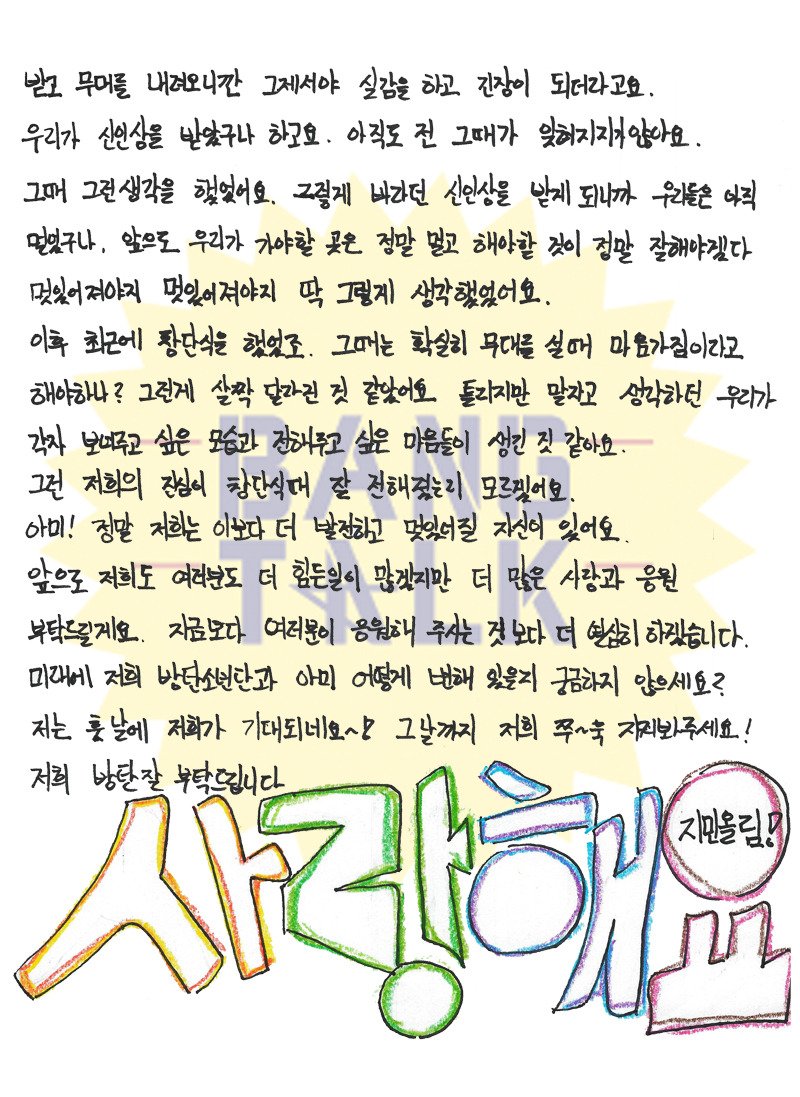 받고 무대를 내려오니깐 그제서야 실감을 하고 긴장이 되더라고요.
우리가 신인상을 받았구나 하고요. 아직도 전 그때가 잊혀지지가 않아요.
그때 그런 생각을 했었어요. 그렇게 바라던 신인상을 받게 되니까 우리들은 아직
멀었구나, 앞으로 우리가 가야할 곳은 정말 멀고 해야할 것이 정말 잘해야겠다
멋있어져야지 멋있어져야지 딱 그렇게 생각했었어요.
이후 최근에 창단식을 했었죠. 그때는 확실히 무대를 설 때 마음가짐이라고
해야하나? 그런게 살짝 달라진 것 같았어요. 틀리지만 말자고 생각하던 우리가
각자 보여주고 싶은 모습과 전해주고 싶은 마음들이 생긴 것 같아요.
그런 저희의 진심이 창단식때 잘 전해졌는지 모르겠어요.
아미! 정말 저희는 이보다 더 발전하고 멋있어질 자신이 있어요.
앞으로 저희도 여러분도 더 힘든일이 많겠지만 더 많은 사랑과 응원
부탁드릴게요. 지금보다 여러분이 응원해 주시는 것보다 더 열심히 하겠습니다.
미래에 저희 방탄소년단과 아미 어떻게 변해 있을지 궁금하지 않으세요?
저는 훗날에 저희가 기대되네요~! 그날까지 저희 쭈~욱 지켜봐주세요!
저희 방탄 잘 부탁드립니다
사랑해요
지민올림!
BANG
TALK